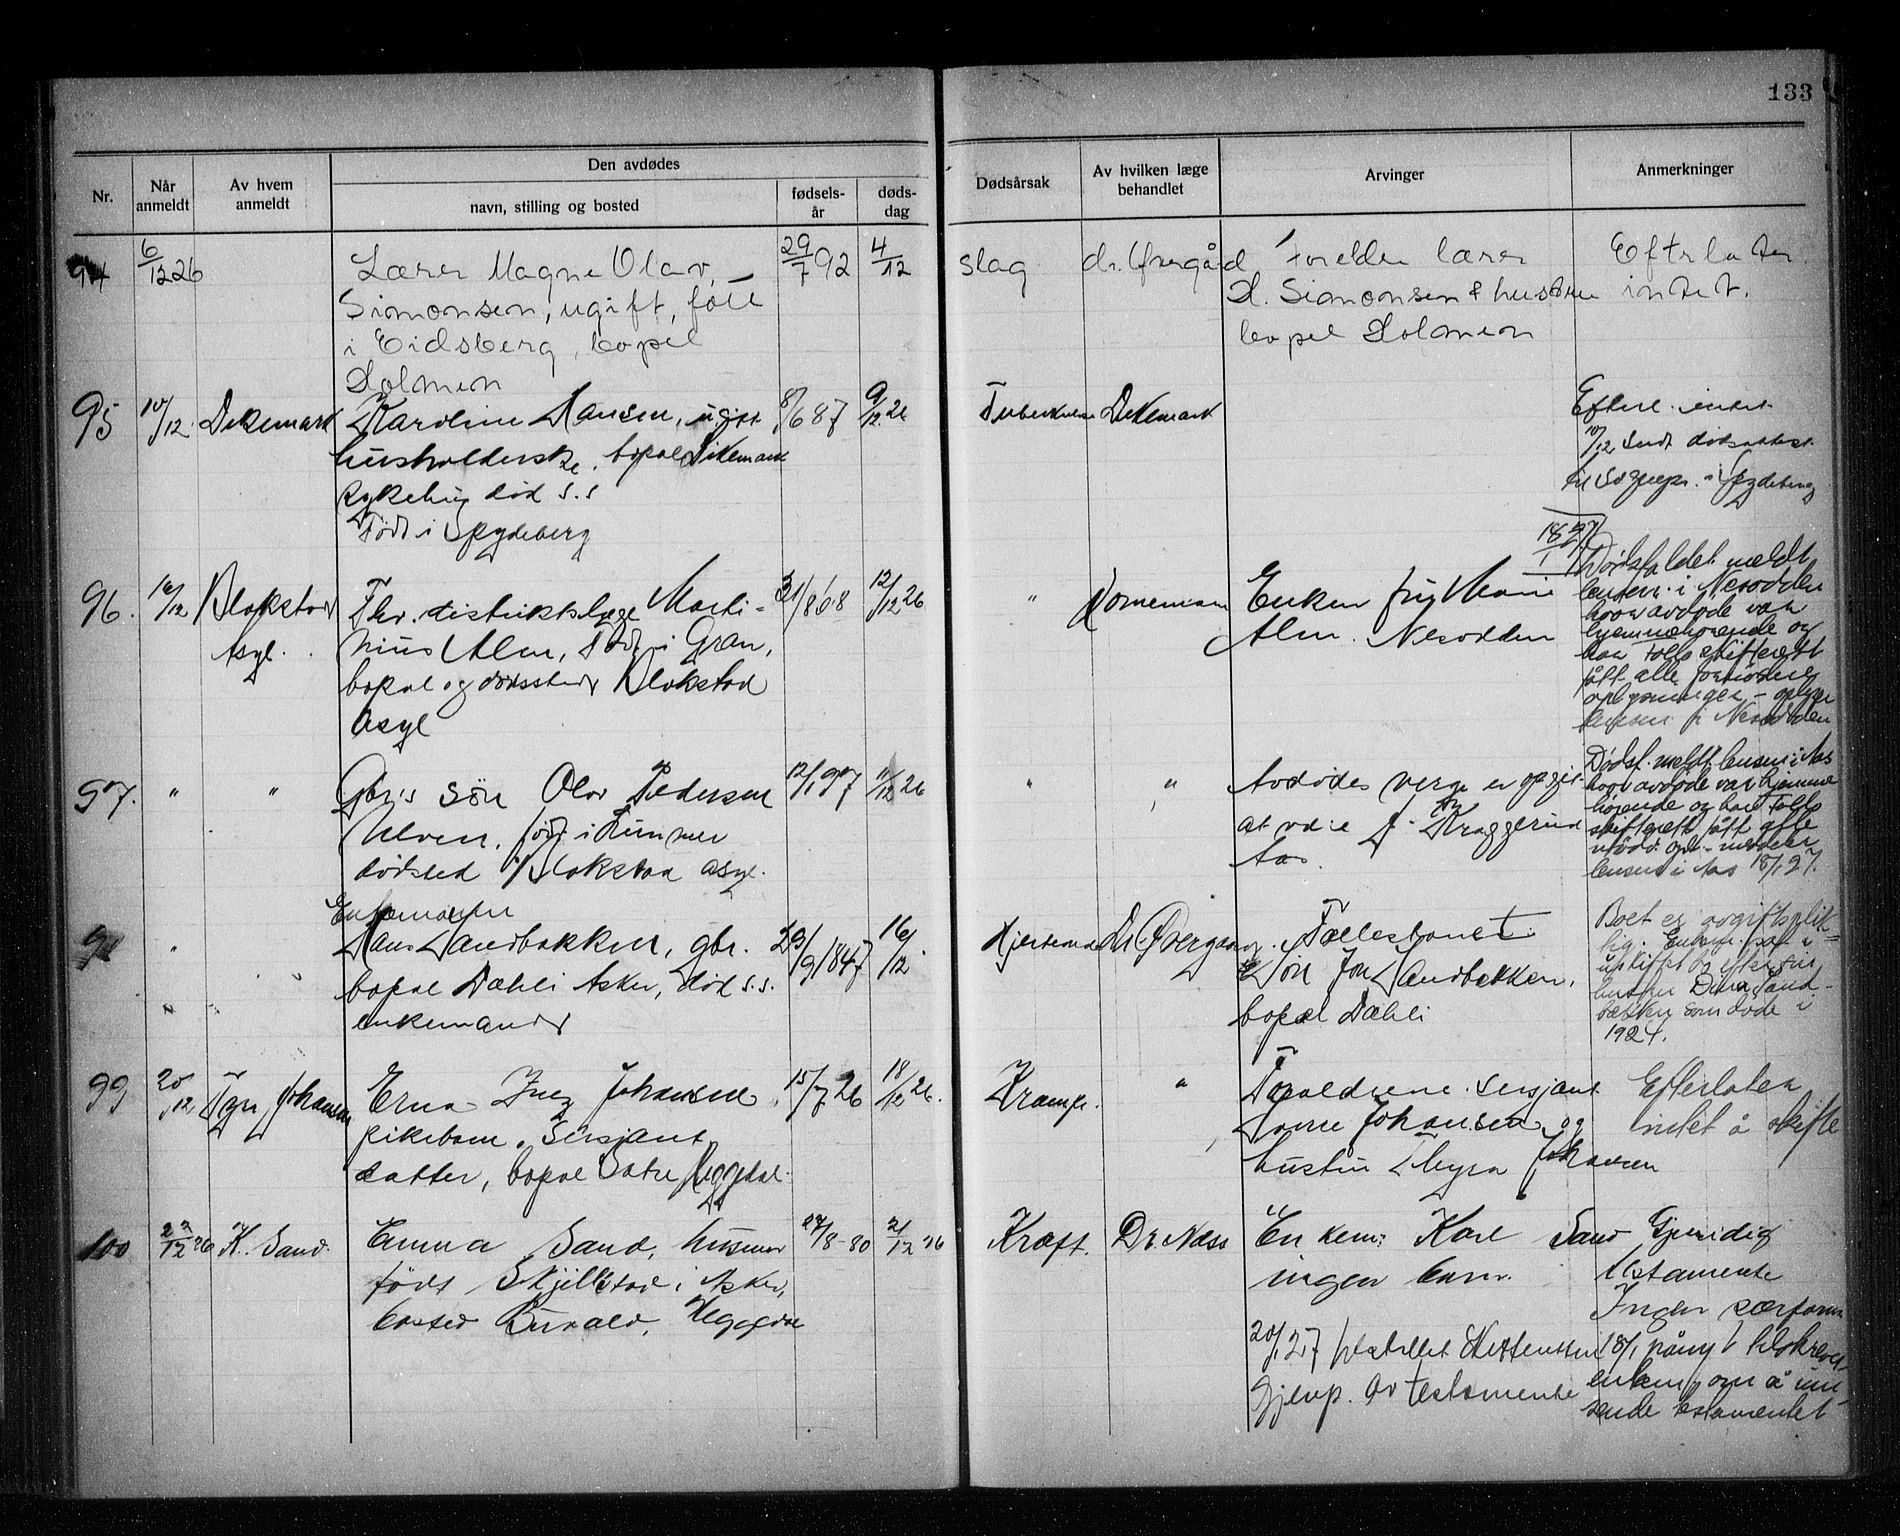 133
Nr.
Når anmeldt
Av hvem anmeldt
Den avdødes
navn, stilling og bosted
fødsels-år
døds-dag
Dødsårsak
Av hvilken læge behandlet
Arvinger
Anmerkninger
94
6/12 26
Lærer Magne Olav
Simonsen, ugift, født
i Eidsberg, bopel
Holmen
29/7 92
4/12
slag
dr. Øvergård
Foreldre lærer
H. Simonsen & hustru
bopel Holmen
Efterlater
intet.
95
10/12
Dikemark
Karoline Hansen, ugift
husholderske, bopæl Dikemark
sykehus død s.s
Født i Spydeberg
8/6 87
9/12 26
Tuberkulose
Dikemark
Efterl. intet
10/12 sendt dødsattest
til sognepr. i Spydeberg
96.
14/12
Blakstad
Asyl.
Fhv. distriktslæge Marti-
nius Alm, født i Gran,
bopæl og dødssted Blakstad
Asyl
31/8 68
12/12 26
"
Enken fru Marie
Alm. Nesodden
18/1 27
Dødsfaldet meldt
lensm. i Nesodden
hvor avdøde var
hjemmehørende og
har Follo skifterett
fått alle fornødne
oplysninger - oplyser
lensm. i Nesodden
97.
"
"
Gbr.s søn Olav Pedersen
Ulven, født i
dødsted Blakstad asyl.
12/1 97
11/12 26
"
"
Avdødes verge er opgit
at være J. Kraggerud
Aas.
Dødsf. meldt lensm. i Aas
hvor avdøde var hjemme
hørende og har Follo
skifterett fått alle
nødv. opl. - meddeler
lensm. i Aas 18/1 27.
98
"
"
Enkemannen
Hans Sandbakken, gbr.
bopæl Dæhli Asker, død s.s.
enkemand
23/9 1847
16/12
Dr. Øvergaard
Fællesbonet
Søn Jon Sandbakken,
bopæl Dæhli
Boet er avgiftsplik-
tig. Enkem. sat i
uskiftet bo efter sin
hustru Dina Sand-
bakken som døde i
1924.
99
20/12
Johansen
Erna Inez Johansen
pikebarn, Sersjant
datter, bopæl Sætre Heggedal.
15/7 26
18/12 26.
Krampe.
"
Foreldrene. Sersjant
Johansen og
hustru Thyra Johansen
Efterlater
intet å skifte
100
22/12 26
K. Sand.
Emma Sand, husmor
født Skjellestad i Asker,
bosted Buvald, Heggedal
27/8-80
21/12 26
Kræft.
Dr. Næss
Enkem: Karl Sand
ingen barn.
20/1 27
gjenp. av testamente
Gjensidig
testamente
Ingen særformue
18/1 pånyt tilskrevet
enkem. om å inn
sende testamentet